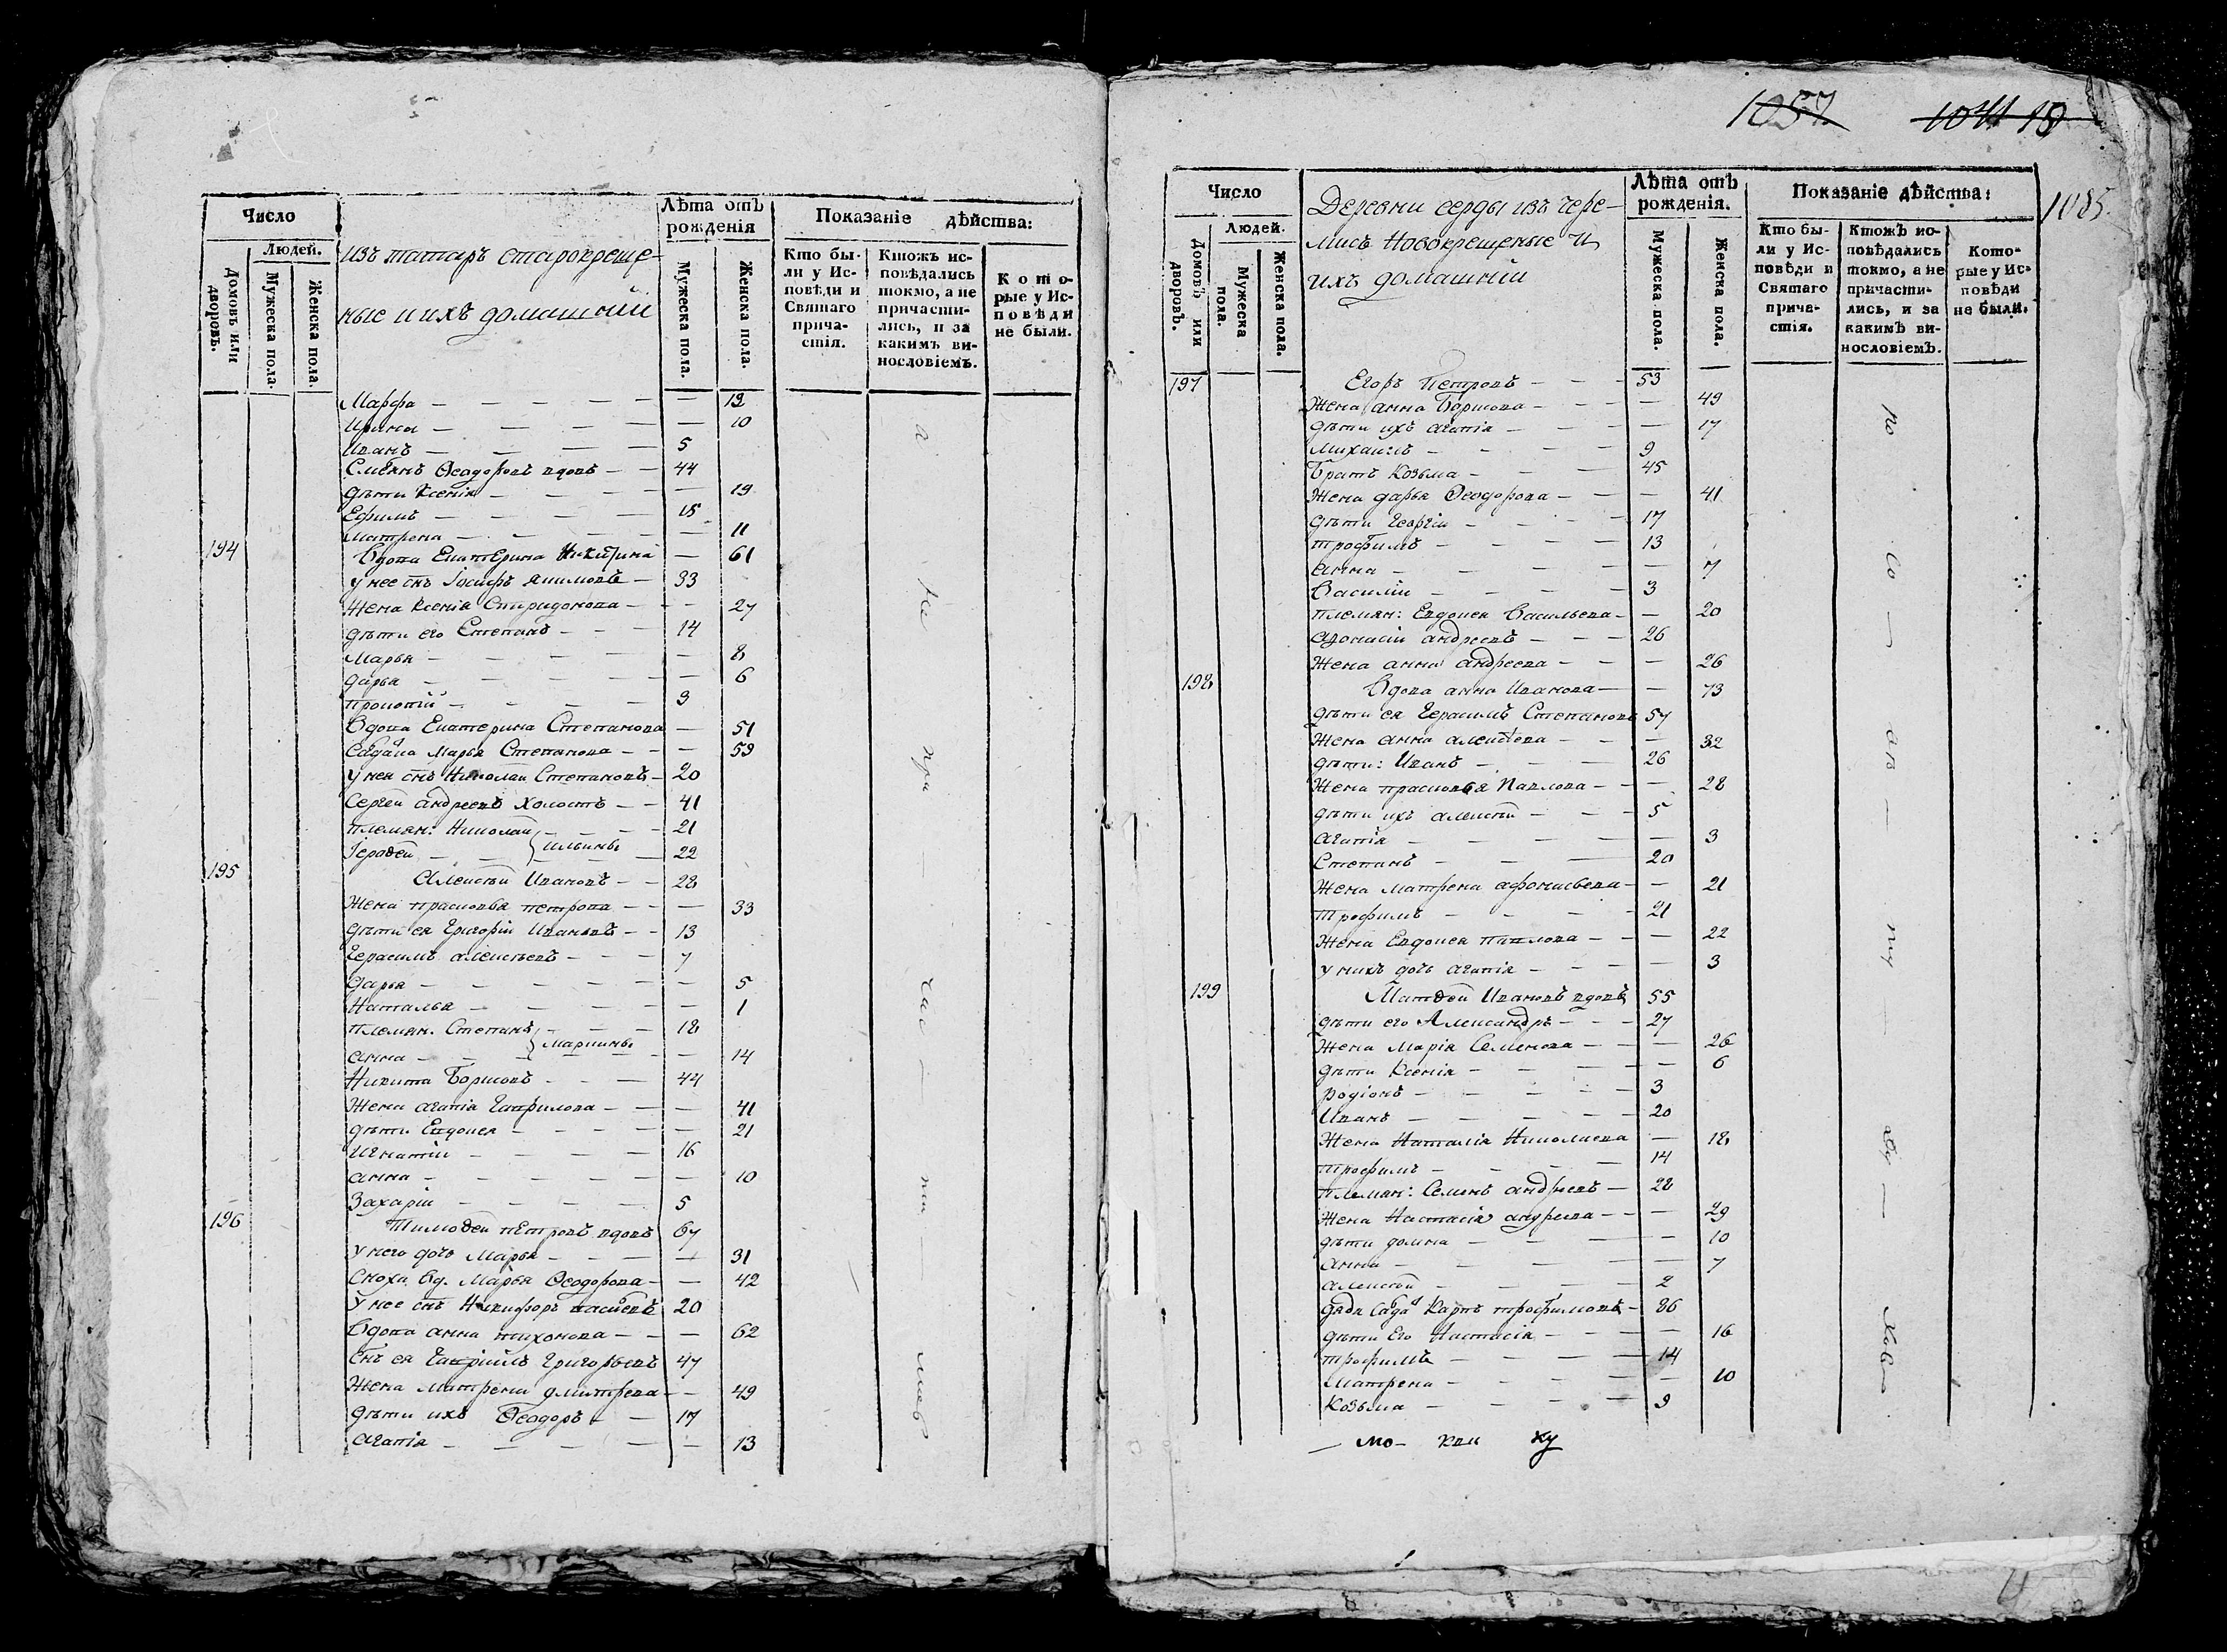 Число
Людей.
Домовъ или дворовъ.
Мужеска пола.
Женска пола.
изъ татаръ старокреще-
ные и ихъ домашнiй
Лѣта отъ рожденiя
Мужеска пола.
Женска пола.
Показанiе дѣйства:
Кто бы-
ли у Ис-
повѣди и
Святаго
прича-
стiя.
Ктожъ ис-
повѣдались
токмо, а не
причасти-
лись, и за
какимъ ви-
нословiемъ.
Кото-
рые у Ис-
повѣди
не были.
Марфа — 12
Ирина — 10
Иванъ — 5
Симеянъ Ѳеодоровъ вдовъ — 44
дѣти Ксенiя — 19
Ефимъ — 15
Матрена — 11
194 Вдова Екатерина Никитина — 61
у нее снъ Iосифъ Якимовъ — 33
Жена Ксенiя Спиридонова — 27
дѣти его Степанъ — 14
Марья — 8
Дарья — 6
Прокопiй — 3
Вдова Екатерина Степанова — 51
Марья Степанова — 59
у нея снъ Николай Степановъ — 20
Сергей Андреевъ холостъ — 41
племян: Николай — 21
Iерофей } Ильины — 22
195 Алексѣй Ивановъ — 28
Жена Прасковья Петрова — 33
дѣти ея Григорiй Ивановъ — 13
Герасимъ Алексѣевъ — 7
Дарья — 5
Наталья — 1
племян. Степанъ — 18
Анна } Маркины — 14
Никита Борисовъ — 44
Жена Агапiя Гаврилова — 41
дѣти Евдокея — 21
Игнатiй — 16
Анна — 10
Захарiй — 5
196 Тимоѳей Петровъ вдовъ 67
у него дочь Марья — 31
Сноха вд. Марья Ѳеодорова — 42
у нее снъ Никифоръ 20
Вдова Анна Тихонова — 62
Снъ ея Гаврiилъ Григорьевъ 47
Жена Матрена Дмитрева — 49
дѣти ихъ Ѳеодоръ — 17
Агапiя — 13
а
не
при
час —
ти —
лись
1057
1085
Число
Людей.
Домовъ или дворовъ.
Мужеска пола.
Женска пола.
Деревни серды изъ чере-
мисъ Новокрещеные и
ихъ домашнiй
Лѣта отъ рожденiя.
Мужеска пола.
Женска пола.
Показанiе дѣйства:
Кто бы-
ли у Ис-
повѣди и
Святаго
прича-
стiя.
Ктожъ ис-
повѣдались
токмо, а не
причасти-
лись, и за
какимъ ви-
нословiемъ.
Кото-
рые у Ис-
повѣди
не были.
197 Егоръ Петровъ — 53
Жена Анна Борисова — 49
дѣти ихъ Агапiя — 17
Михаилъ — 9
Братъ Козьма — 45
Жена Дарья Ѳеодорова — 41
дѣти Георгiй — 17
Трофимъ — 13
Анна — 7
Василiй — 3
племян: Евдокея Васильева — 20
Афонасiй Андреевъ — 26
Жена Анна Андреева — 26
198 Вдова Анна Иванова — 73
дѣти ея Герасимъ Степановъ 57
Жена Анна Алексѣева — 32
дѣти: Иванъ — 26
Жена Прасковья Павлова — 28
дѣти ихъ Алексѣй — 5
Агапiя — 3
Степанъ — 20
Жена Матрена Афонасьева — 21
Трофимъ — 21
Жена Евдокея Павлова — 22
у нихъ дочь Агапiя — 3
199 Матѳей Ивановъ вдовъ 55
дѣти его Александръ — 27
Жена Марiя Семенова — 26
дѣти Ксенiя — 6
Родiонъ — 3
Иванъ — 20
Жена Наталiя Николаева — 18
Трофимъ — 14
племян: Семенъ Андреевъ — 28
Жена Настасiя Андреева — 29
дѣти Домна — 10
Анна — 7
Алексѣй — 2
дядя Карпъ Трофимовъ — 86
дѣти его Настасiя — 16
Трофимъ — 14
Матрена — 10
Козьма — 9